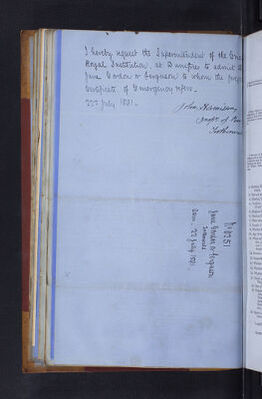 I hereby request the Superintendent of the Crichton
Royal Institution, at Dumfries to admit
Jane Gordon or Ferguson to whom the
Certificate of Emergency refers.
22d July 1881.
John
Inspr. of Poor
Jane Gordon or Ferguson
22 July 1881